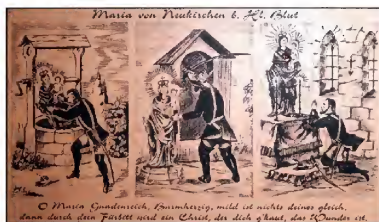 Maria von Neukirchen b. Hl. Blut
O Maria Gnadenreich, Barmherzig, mild ist nichts deines gleich,
dann durch dein Fürbitt wird ein Christ, der dich g'haut, das Wunder ist.